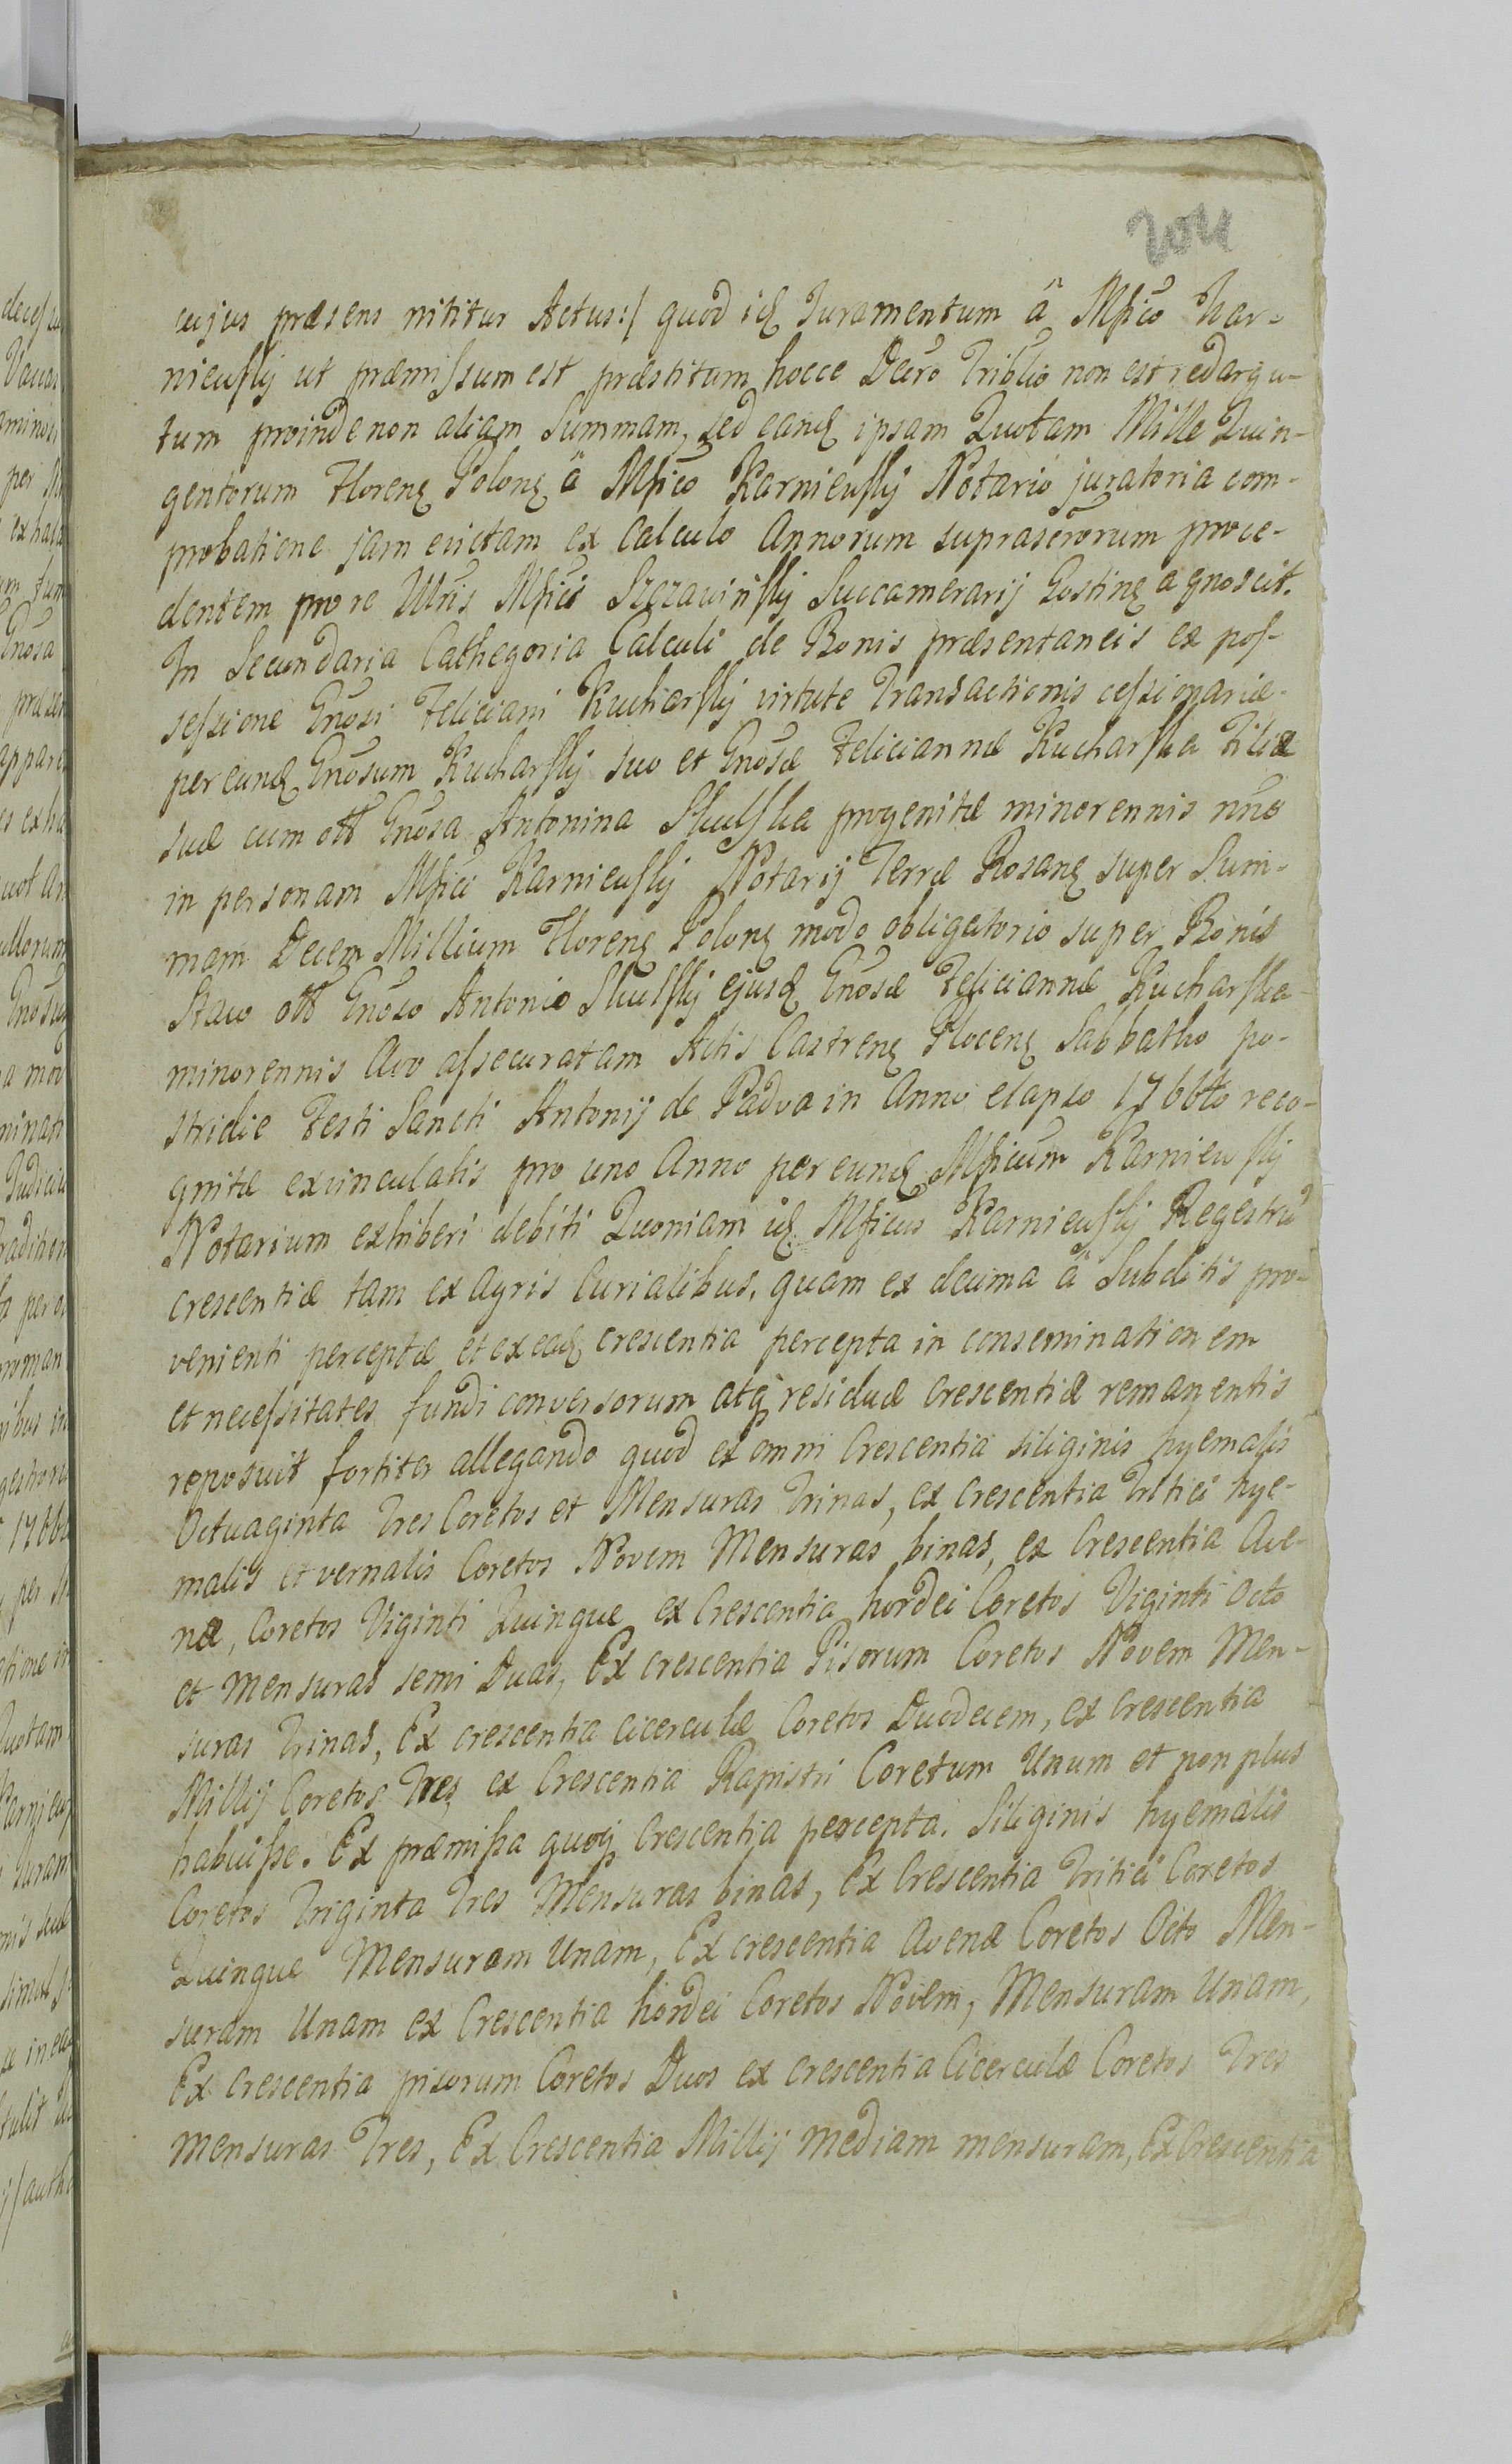 204
cujus præsens nititur Actus:/ quod idq Juramentum â Mfico Kar-
nieuskij ut præmissum est præstitum hocce Decro Triblio non est redargu-
tum proinde non aliam Summam, sed eandq ipsam Quotam Mille Quin-
gentorum Florenq Polonq â Mfico Karnieuskij Notario juratoria com-
probatione jam evictam ex Calculo Annorum suprascrorum proce-
dentem pro re Mfici Szczawinskij Succamerarij Gostinq agnoscit.
In Secundaria Cathegoria Calculi de Bonis præsentaneis ex pos-
sessione Gnosi Feliciani Kucharskij virtute Transactionis cessionariæ
per eundq Gnosum Kucharskij suo et Gnosæ Feliciannæ Kucharska Filiæ
suæ cum olt Gnosa Antonina Skulska progenitæ minorennis nne
in personam Mfici Karnieuskij Notarij Terræ Rosanq super Sum-
mam Decem Millium Florenq Polonq modo obligatorio super Bonis
Staw olt Gnoso Antonio Skulskij ejusdq Gnosæ Feliciannæ Kucharska
minorennis Avo assecuratam Actis Castrenq Plocenq Sabbatho po-
stridie Festi Sancti Antonij de Padva in Anno elapso 1766to reco-
gnitæ exvinculatis pro uno Anno per eundq Mficum Karnieuskij
Notarium exhiberi debiti Quoniam idq Mficus Karnieuskij Regestrū
crescentiæ tam ex Agris Curialibus, quam ex decima â Subditis pro-
venienti perceptæ et ex eadq crescentia percepta in conseminationem
et necessitates fundi conversorum atq residuæ crescentiæ remanentis
reposuit fortiter allegando quod ex omni Crescentia siliginis hyemalis
Octuaginta Tres Coretos et Mensuras Trinas, ex Crescentia Tritici hye-
malis et vernalis Coretos Novem Mensuras binas, ex Crescentia Ave-
næ, Coretos Viginti Quinque ex Crescentia hordei Coretos Viginti Octo
et Mensuras semi Duas, Ex crescentia Pisorum Coretos Novem Men-
suras Trinas, Ex crescentia cicerculæ Coretos Duodecem, ex crescentia
Millij Coretos Tres ex Crescentia Rapistri Coretum Unum et non plus
habuisse. Ex præmissa quoq Crescentia percepta. Siliginis hyemalis
Coretos Triginta Tres Mensuras binas, Ex Crescentia Tritici Coretos
Quinque Mensuram Unam, Ex crescentia Avenæ Coretos Octo Men-
suram Unam ex Crescentia hordei Coretos Novem, Mensuram Unam,
Ex Crescentia pisorum Coretos Duos ex crescentia Cicerculæ Coretos Tres
mensuras Tres, Ex Crescentia Millij mediam mensuram, Ex Crescentia